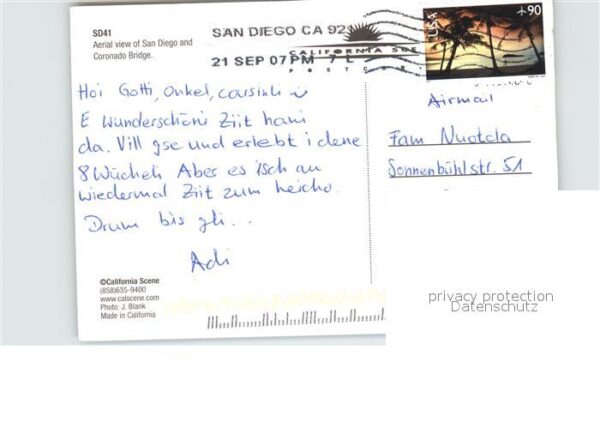 SD41
Aerial view of San Diego and
Coronado Bridge.
SAN DIEGO CA 921
21 SEP 07 PM 7 L
CALIFORNIA SCE
POSTCAR
USA
90
Hoi Gotti, Onkel, cousinli
E Wunderschöni Ziit hani
da. Vill gse und erlebt i dene
8 Wücheli Aber es isch au
wiedermal Ziit zum heicho.
Drum bis gli...
Adi
Airmail
Fam Nuotcla
Sonnenbühlstr. 51
©California Scene
(858)635-9400
www.calscene.com
Photo: J. Blank
Made in California
privacy protection
Datenschutz